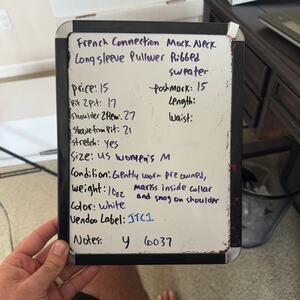 French Connection Mock Neck
Longsleeve Pullover Ribbed
sweater
Price: 15
Poshmark: 15
Pit 2 Pit: 17
Length:
Shoulder 2 Hem: 27
Waist:
Sleeve from Pit: 21
Stretch: yes
Size: US Women's M
Condition: Gently worn pre owned,
marks inside collar
and snag on shoulder
Weight: 10oz
Color: White
Vendoo Label: JTC1
Notes: y 6037